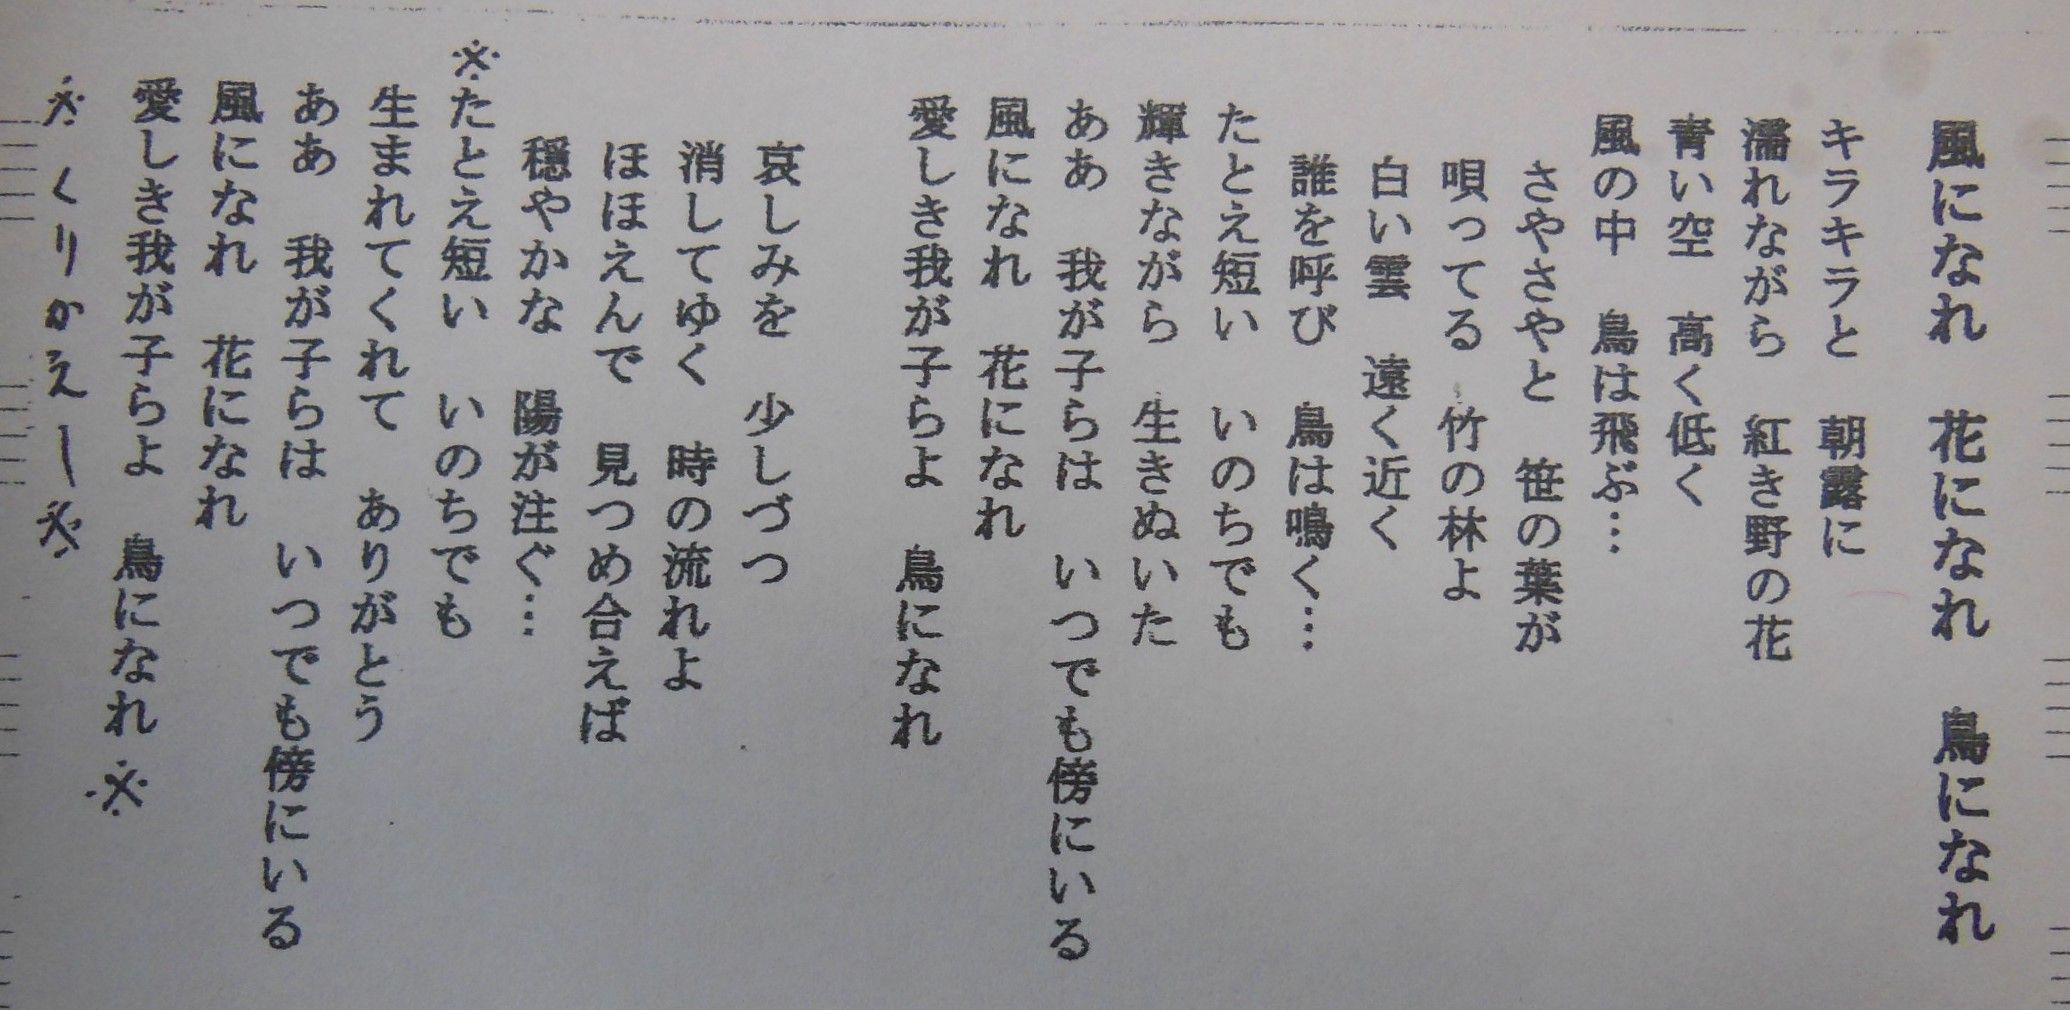 風になれ　花になれ　鳥になれ
キラキラと　朝露に
濡れながら　紅き野の花
青い空　高く低く
風の中　鳥は飛ぶ…
さやさやと　笹の葉が
唄ってる　竹の林よ
白い雲　遠く近く
誰を呼び　鳥は鳴く…
たとえ短い　いのちでも
輝きながら　生きぬいた
ああ　我が子らは　いつでも傍にいる
風になれ　花になれ
愛しき我が子らよ　鳥になれ
哀しみを　少しづつ
消してゆく　時の流れよ
ほほえんで　見つめ合えば
穏やかな　陽が注ぐ…
※たとえ短い　いのちでも
生まれてくれて　ありがとう
ああ　我が子らは　いつでも傍にいる
風になれ　花になれ
愛しき我が子らよ　鳥になれ※
※くりかえし※